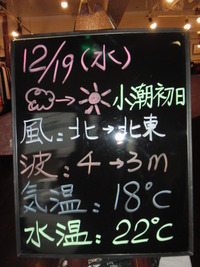 12/19(水)
→ 小潮初日
風:北→北東
波:4→3m
気温:18℃
水温:22℃